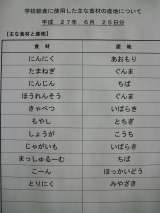 学校給食に使用した主な食材の産地について
平成　２７年　６月　２５日分
【主な食材と産地】
食材　産地
にんにく　あおもり
たまねぎ　ぐんま
にんじん　ちば
ほうれんそう　ぐんま
きゃべつ　いばらき
もやし　とちぎ
しょうが　こうち
じゃがいも　いばらき
まっしゅるーむ　ちば
こーん　ほっかいどう
とりにく　みやざき